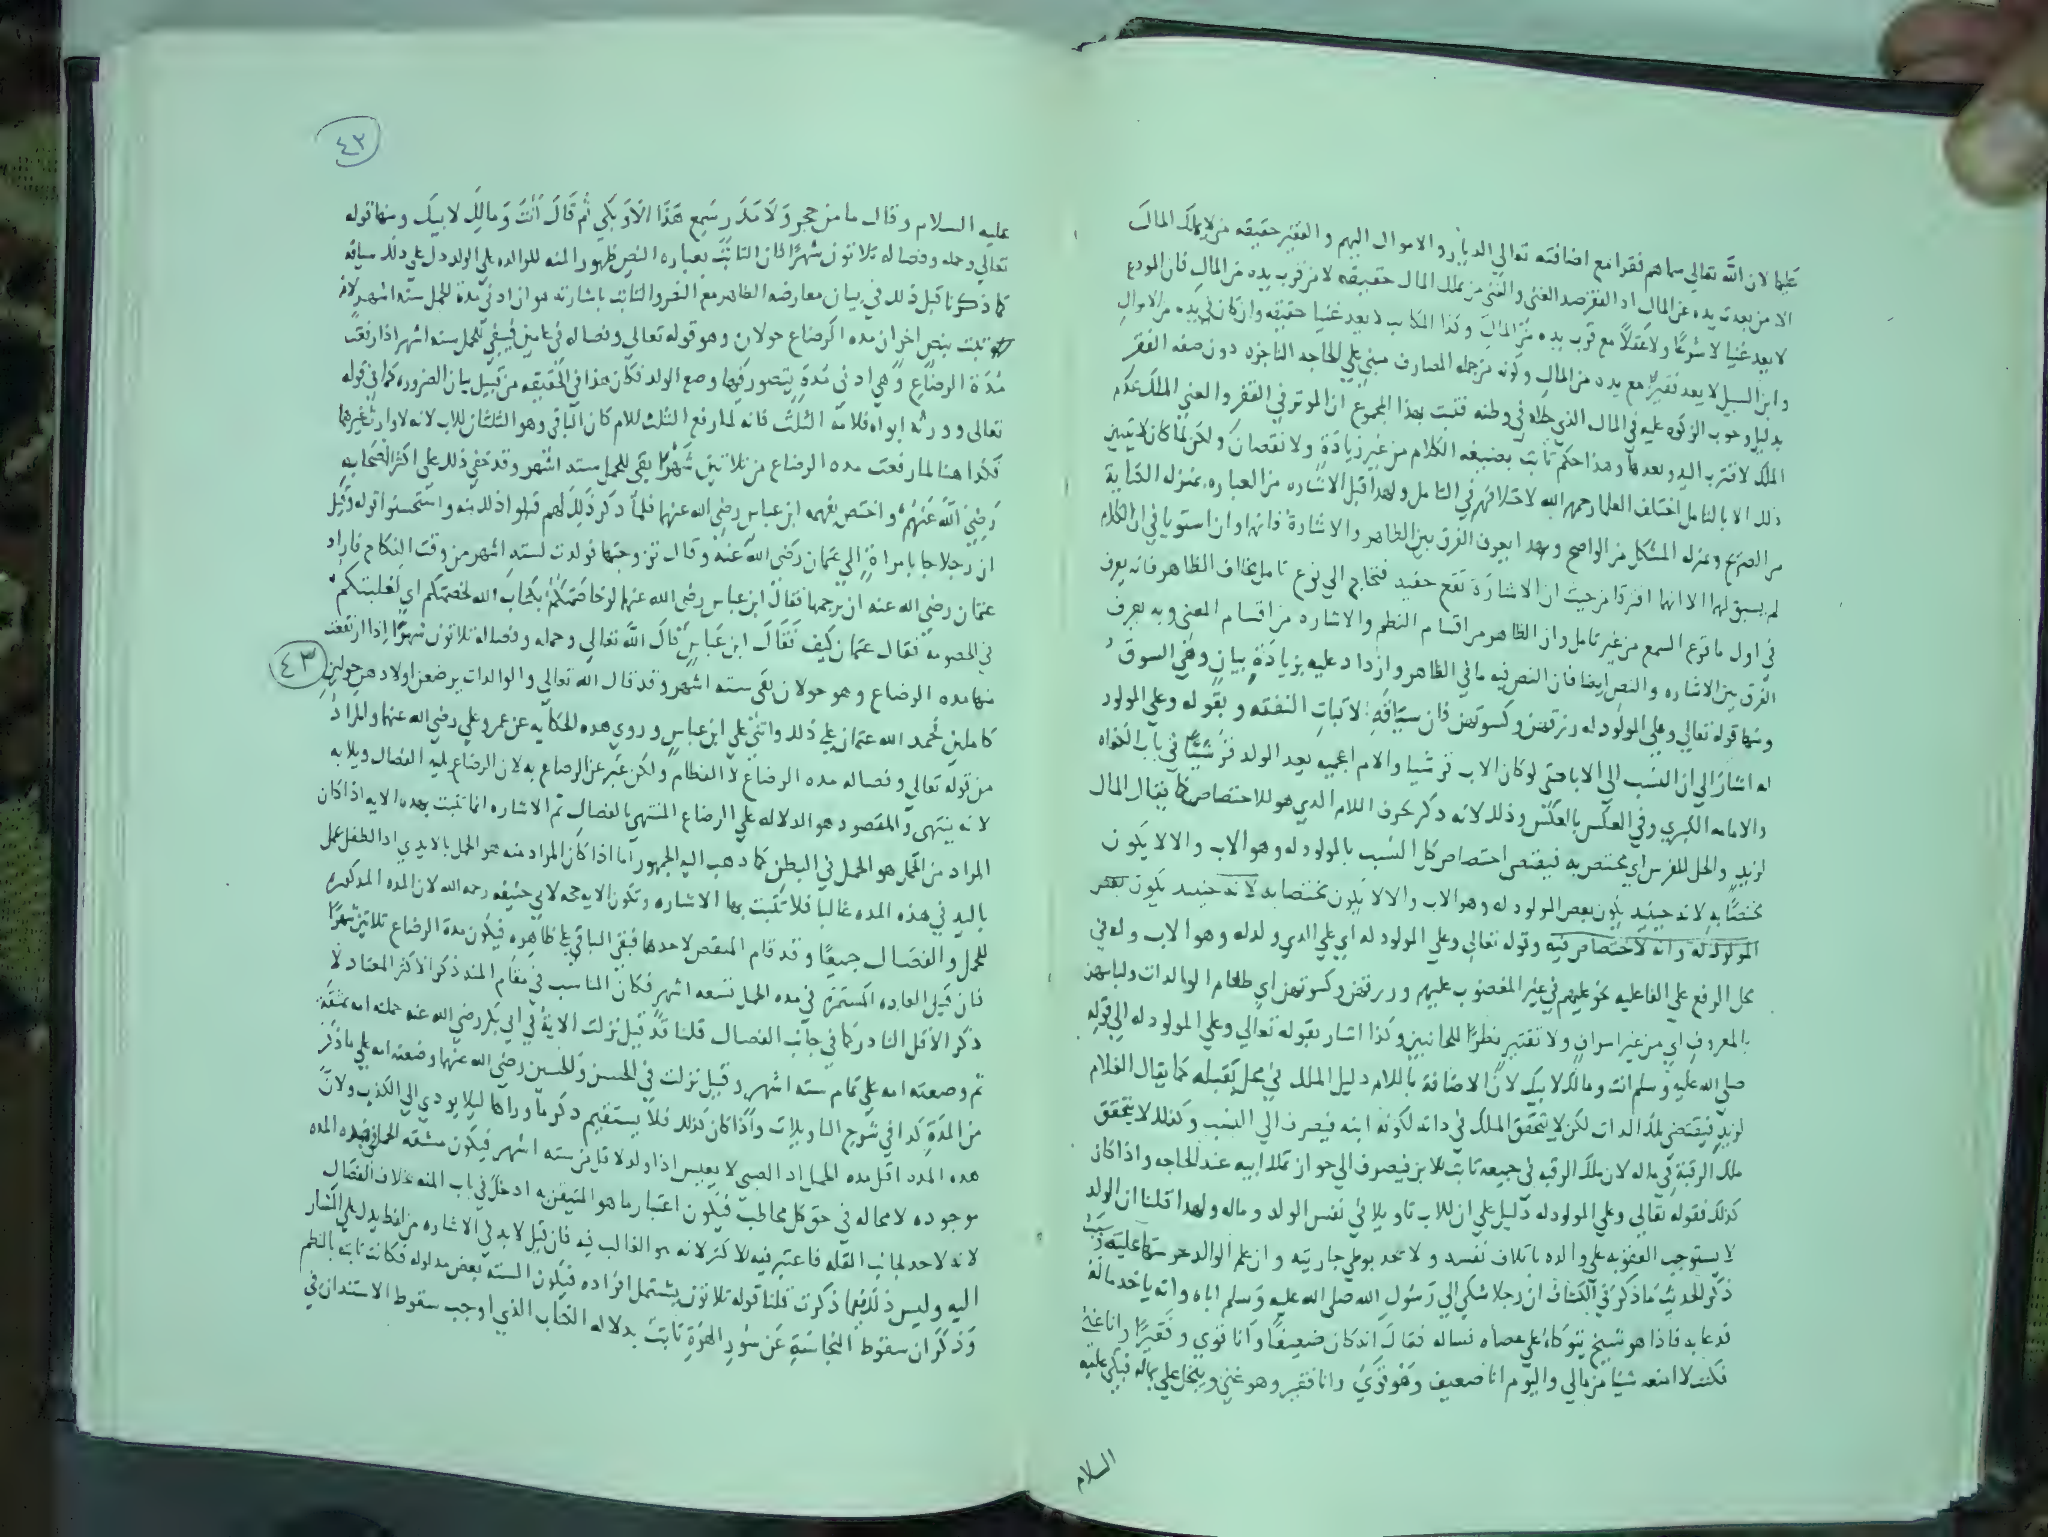 عليها لان الله تعالي سماهم فقرا مع اضافته تعالي الديار والاموال اليهم والفقير حقيقه من لا يملك المال
الا من بعدت يده عن المال اذ الفقر ضد الغنى والغني من يملك المال حقيقه لا من قرب يده من المال فان المودع
لا يعد غنيا لا شرعا ولا عقلا مع قرب يده من المال وكذا المكاتب لا يعد غنيا حقيقه وان كان في يده من الاموال
وابن السبيل لا يعد فقيرا مع بعد يده من المال وكونه من جمله المصارف مبني علي الحاجه الناجزه دون صفه الفقر
بدليل وجوب الزكوه عليه في المال الذي خلاه في وطنه فثبت بهذا المجموع ان الموثر في الفقر والغني الملك عدم
الملك لا قرب اليد وبعدها وهذا حكم ثابت بصيغه الكلام من غير زيادة ولا نقصان ولكن لما كان لا يتبين
ذلك الا بالتامل اختلف العلما رحمهم الله لاختلافهم في التامل ولهذا قيل الاشاره من العباره بمنزله الكناية
من الصريح وبمنزله المشكل من الواضح وبهذا يعرف الفرق بين الظاهر والاشارة فانهما وان استويا في ان الكلام
لم يسق لهما الا انهما افترقا من حيث ان الاشارة تقع خفيه فتحتاج الي نوع تامل بخلاف الظاهر فانه يعرف
في اول ما قرع السمع من غير تامل وان الظاهر من اقسام النظم والاشاره من اقسام المعني وبه يعرف
الفرق بين الاشاره والنص ايضا فان النص فيه ما في الظاهر وازداد عليه بزيادة بيان وهي السوق
ومنها قوله تعالي وعلي المولود له رزقهن وكسوتهن فان سياقه لاثبات النفقه وبقوله وعلي المولود
له اشار الي ان النسب الي الابا حتي لو كان الاب قرشيا والام اعجميه يعد الولد قرشيا في باب الكفاه
والامامه الكبري وفي العكس بالعكس وذلك لانه ذكر بحرف اللام الذي هو للاختصاص كما يقال المال
لزيد والجل للفرس اي يختص به فيقتضي اختصاص كل النسب بالمولود له وهو الاب والا لا يكون
مختصا به لانه حينيد يكون بعض المولود له وهو الاب والا لا يكون مختصا به لانه حينيد يكون بعض
المولود له وانه لا اختصاص فيه وقوله تعالي وعلي المولود له اي علي الذي ولد له وهو الاب وله في
محل الرفع علي الفاعليه نحو عليهم في غير المغضوب عليهم ورزقهن وكسوتهن اي طعام الوالدات ولباسهن
بالمعروف اي من غير اسراف ولا تقتير نظرا للجانبين وكذا اشار بقوله تعالي وعلي المولود له الي قوله
صلي الله عليه وسلم انت ومالك لابيك لان الاضافة باللام دليل الملك في محل يقبله كما يقال الغلام
لزيد فيقتضي ملك الذات لكن لا يتحقق الملك في ذاته لكونه ابنه فيصرف الي النسب وكذلك لا يتحقق
ملك الرقبة في ماله لان ملك الرقبه في جميعه ثابت للابن فيصرف الي جواز تملك ابيه عند الحاجه واذا كان
كذلك فقوله تعالي وعلي المولود له دليل علي ان للاب تاويلا في نفس الولد وماله ولهذا قلنا ان الولد
لا يستوجب العقوبه علي والده باتلاف نفسه ولا يحد بوطي جاريته وان علم الوالد حرمتها عليه وسبب
ذكر الحديث ما ذكر في الكشاف ان رجلا شكي الي رسول الله صلي الله عليه وسلم اباه وانه ياخذ ماله
فدعا به فاذا هو شيخ يتوكا علي عصاه فساله فقال انه كان ضعيفا وانا قوي وفقيرا وانا غني
فكنت لا امنعه شيا من مالي واليوم انا ضعيف وهو قوي وانا فقير وهو غني ويبخل علي بماله فبكي عليه
السلام
٤٢
عليه السلام وقال ما من حجر ولا مدر يسمع هذا الا وبكي ثم قال انت ومالك لابيك ومنها قوله
تعالي وحمله وفصاله ثلاثون شهرا فان الثابت بعباره النص ظهور المنه للوالده علي الولد دل علي ذلك سياقه
كما ذكرنا قبل ذلك في بيان معارضه الظاهر مع النص والثابت باشارته هو ان ادني مدة الحمل سته اشهر لانه
ثبت بنص اخر ان مده الرضاع حولان وهو قوله تعالي وفصاله في عامين فيبقي للحمل سته اشهر اذا رفعت
مدة الرضاع وهي ادني مدة يتصور فيها وضع الولد فكان هذا في الحقيقه من قبيل بيان الضروره كما في قوله
تعالى وورثه ابواه فلامه الثلث فانه لما رفع الثلث للام كان الباقي وهو الثلثان للاب لانه لا وارث غيرهما
فكذا هنا لما رفعت مده الرضاع من ثلاثين شهرا بقي للحمل سته اشهر وقد خفي ذلك علي اكثر الصحابه
رضي الله عنهم واختص بفهمه ابن عباس رضي الله عنهما فلما ذكر ذلك لهم قبلوا ذلك منه واستحسنوا قوله وقيل
ان رجلا جا بامراة الي عثمان رضي الله عنه وقال تزوجتها فولدت لسته اشهر من وقت النكاح فاراد
عثمان رضي الله عنه ان يرجمها فقال ابن عباس رضي الله عنهما لو خاصمتكم بكتاب الله لخصمتكم اي لغلبتكم
في الخصومه فقال عثمان كيف فقال ابن عباس قال الله تعالي وحمله وفصاله ثلاثون شهرا اذا ارتفعت
٤٣
منها مده الرضاع وهو حولان بقي سته اشهر وقد قال الله تعالي والوالدات يرضعن اولادهن حولين
كاملين فحمد الله عثمان علي ذلك واثني علي ابن عباس وروي هذه الحكايه عن عمر وعلي رضي الله عنهما والمراد
من قوله تعالي وفصاله مده الرضاع لا الفطام ولكن عبر عن الرضاع به لان الرضاع يليه الفصال ويلابه
لانه ينتهي والمقصود هو الدلاله علي الرضاع المنتهي بالفصال ثم الاشاره انما تثبت بهذه الايه اذا كان
المراد من الحمل هو الحمل في البطن كما ذهب اليه الجمهور اما اذا كان المراد منه هو الحمل بالايدي اذ الطفل يحمل
باليد في هذه المده غالبا فلا تثبت بها الاشاره وتكون الايه حجه لابي حنيفه رحمه الله لان المده المذكوره
للحمل والفصال جميعا وقد قام المنقص لاحدهما فبقي الباقي علي ظاهره فيكون مدة الرضاع ثلاثين شهرا
فان قيل العاده المستمرة في مده الحمل تسعه اشهر فكان المناسب في مقام المنه ذكر الاكثر المعتاد لا
ذكر الاقل النادر كما في جانب الفصال قلنا قد قيل نزلت الاية في ابي بكر رضي الله عنه حملته امه بمشقة
ثم وضعته امه علي تمام سته اشهر وقيل نزلت في الحسن والحسين رضي الله عنهما وضعته امه علي ما ذكر
من المدة كذا في شرح التاويلات واذا كان كذلك فلا يستقيم ذكر ما وراها ليلا يودي الي الكذب ولان
هذه المدة اقل مده الحمل اذ الصبي لا يعيش اذا ولد لاقل من سته اشهر فيكون مشقه الحمل في هذه المده
موجوده لا محاله في حق كل مخاطب فيكون اعتبار ما هو المتيقن به ادخل في باب المنه بخلاف الفصال
لانه لا حد لجانب القله فاعتبر فيه الاكثر لانه هو الغالب فيه فان قيل لا بد في الاشاره من لفظ يدل علي المشار
اليه وليس ذلك فيما ذكرت قلنا قوله ثلاثون يشتمل افراده فيكون السته بعض مدلوله فكانت ثابته بالنظم
وذكر ان سقوط النجاسة عن سور الهرة ثابت بدلاله الكتاب الذي اوجب سقوط الاستئذان في